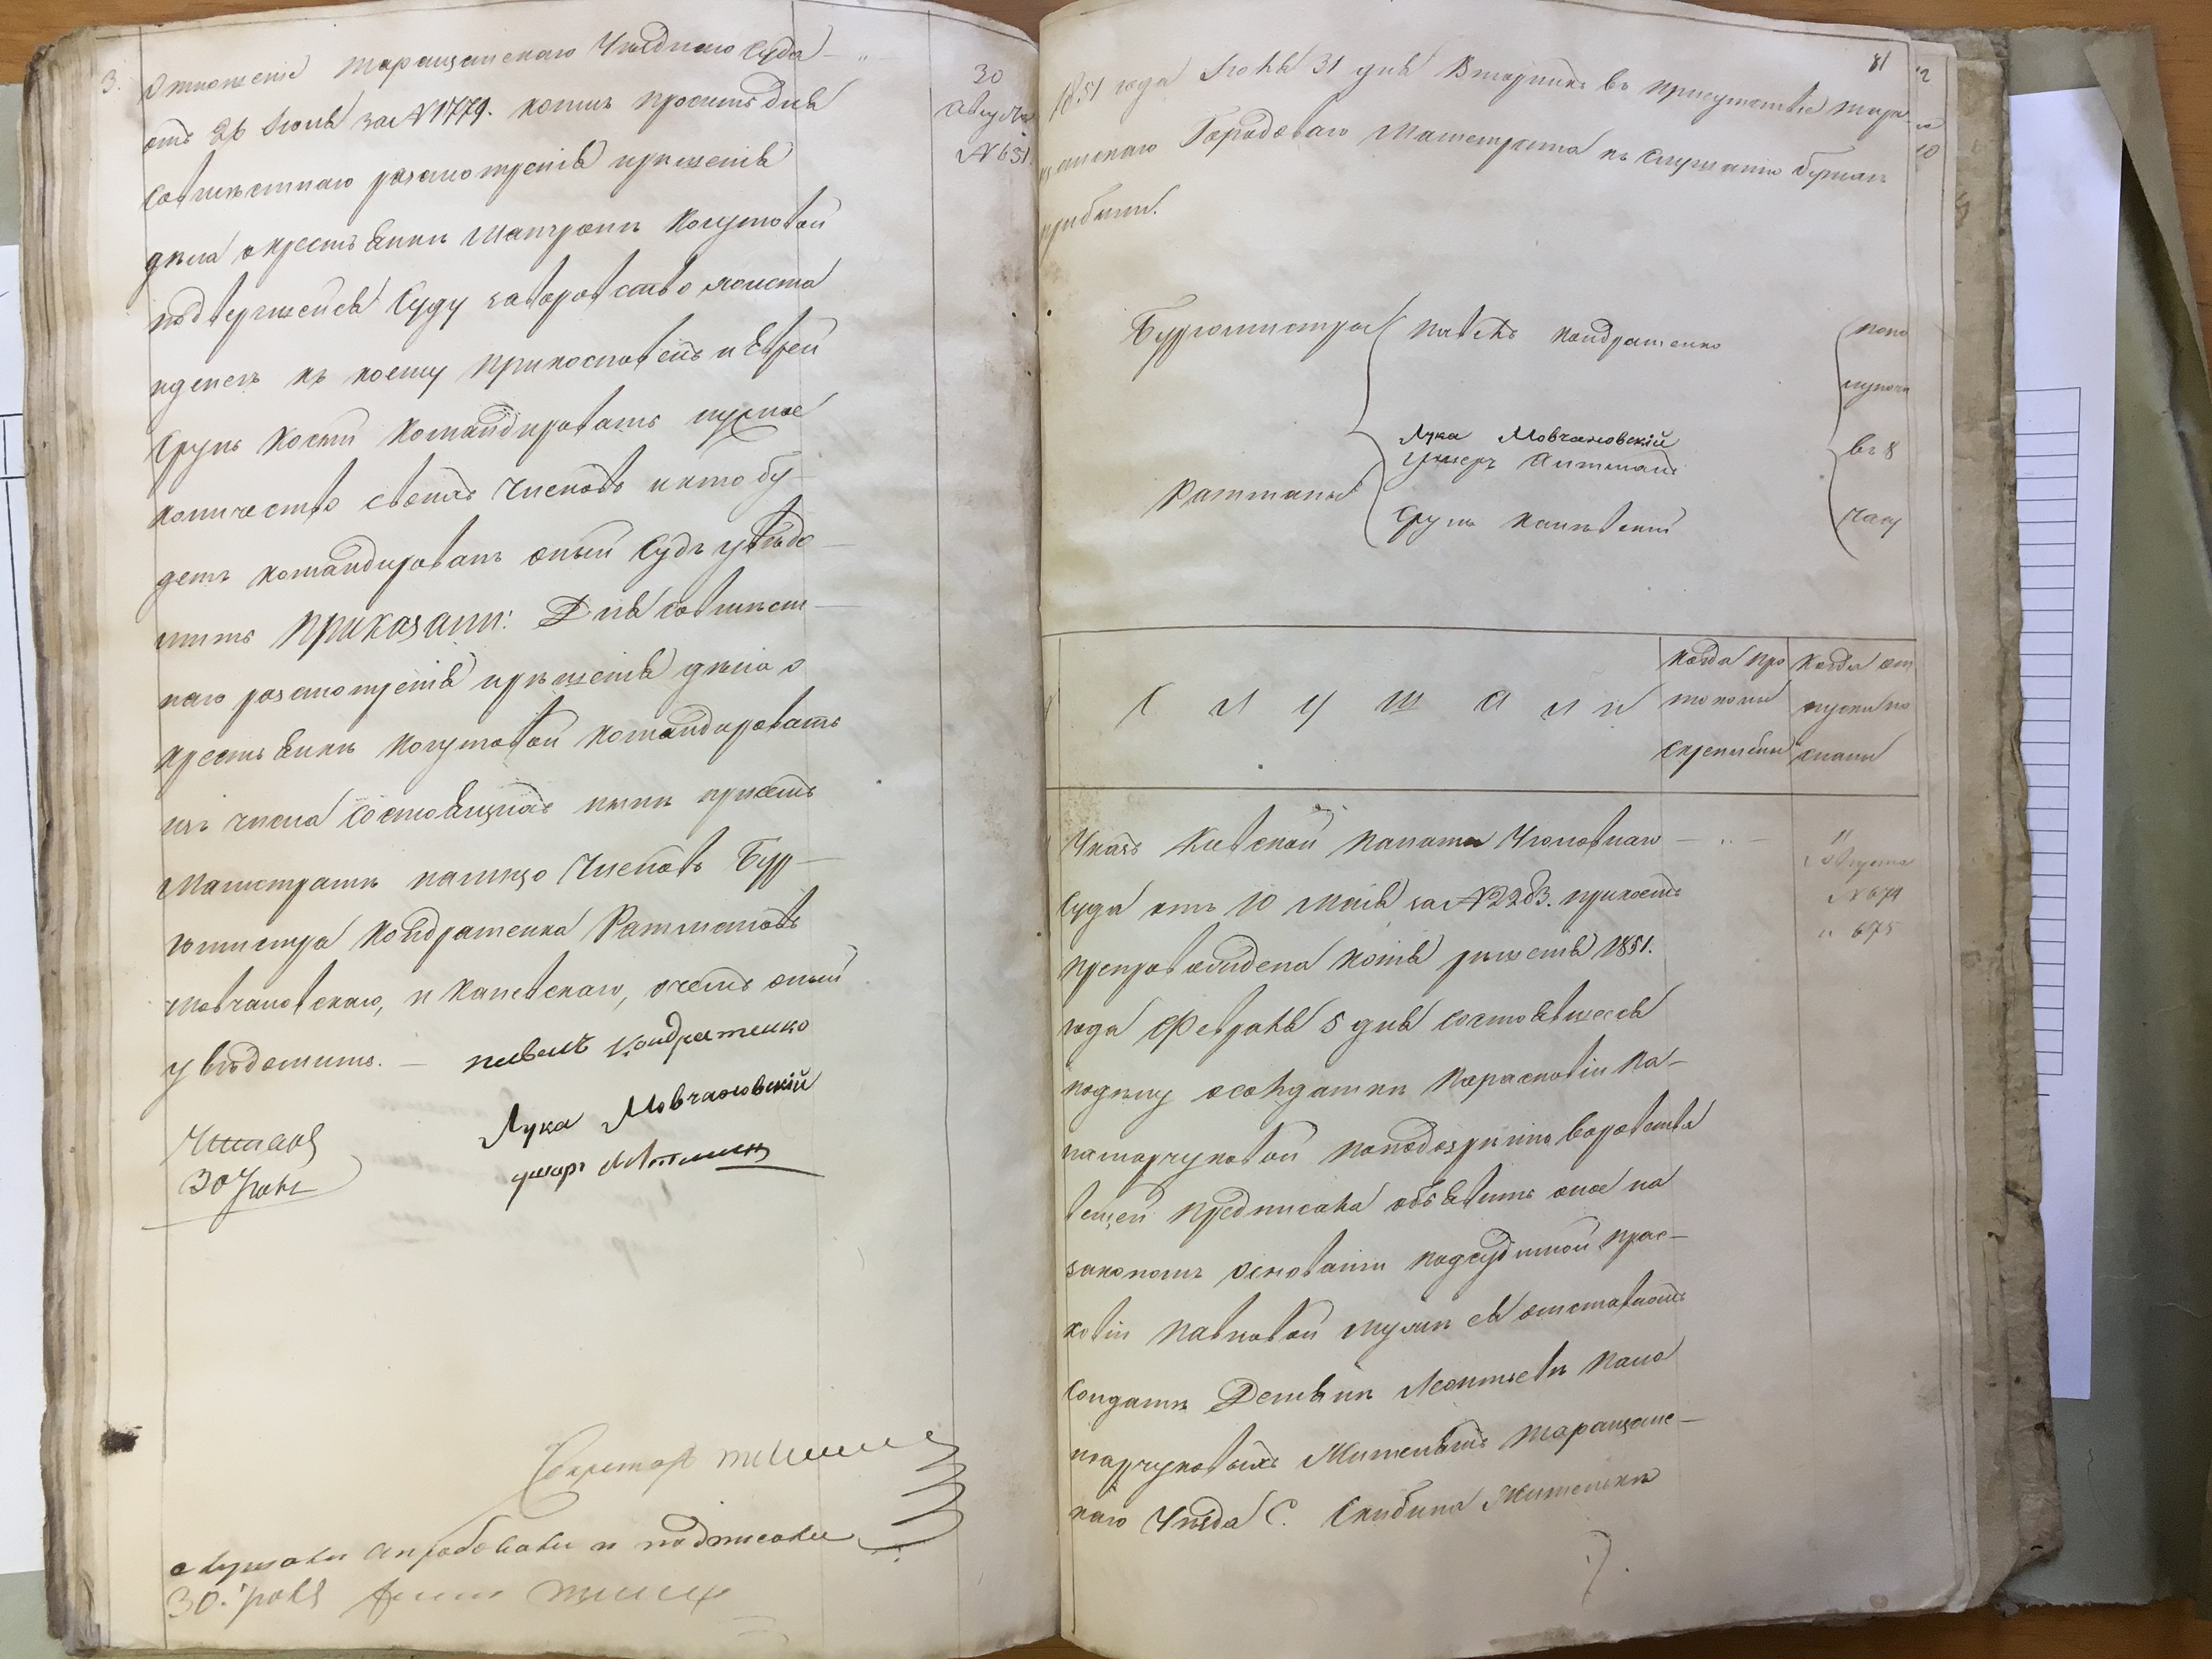 3. Отношение Таращанскаго Уезднаго Суда — „
отъ 26 Іюля за №1779. коимъ проситъ для
совместнаго разсмотренія и решенія
дела о крестьянке Матроне Когутовой
подвергшейся Суду за воровство холста
иденегъ къ коему прикосновенъ и Еврей
Сруль командировать нужное
количество своихъ Членовъ и кто бу-
детъ командированъ оный Судъ уведо-
мить Приказали: Для совмест-
наго разсмотренія и решенія дела о
крестьянке Когутовой командировать
изъ числа состоящихъ ныне при семъ
Магистрате налицо Членовъ Бур-
гомистра Кондратенка Ратмановъ
Мовчановскаго, и Каневскаго, о чемъ оный
уведомить. — павелъ Кондратенко
Лука Мовчановскій
Читалъ
30 Іюля
Секретарь
слушали апробовали и подписали
30. Іюля
30
Августа
№651.
81
1851 года Іюля 31 дня Вторникъ въ присутствіе Тара-
щанскаго Городоваго Магистрата къ слушанію бумагъ
прибыли.
Бургомистры Павелъ Кондратенко
Лука Мовчановскій
Ушеръ
Ратманы
Сруль Каневскій
попо
луночи
въ 8
часу
С л у ш а л и
Когда про
токолы
скреплены
Когда от
пуски по
сланы
Указъ Кіевской Палаты Уголовнаго — „ —
Суда отъ 10 Мая за №2263. при коемъ
препровождена копія решенія 1851.
года Февраля 5 дня состоявшееся
поделу осолдатке Парасковіи Ка-
паторчуковой поподозренію воровства
вещей предписала объявить оное на
закономъ основаніи подсудимой Прас-
ковіи Павковой мужу ея отставномъ
солдате Демьяне Леонтьеве Капа
торчуковыхъ Жителямъ Таращанс-
каго Уезда С. Скибина Жителям
„
Августа
№674
„ 675